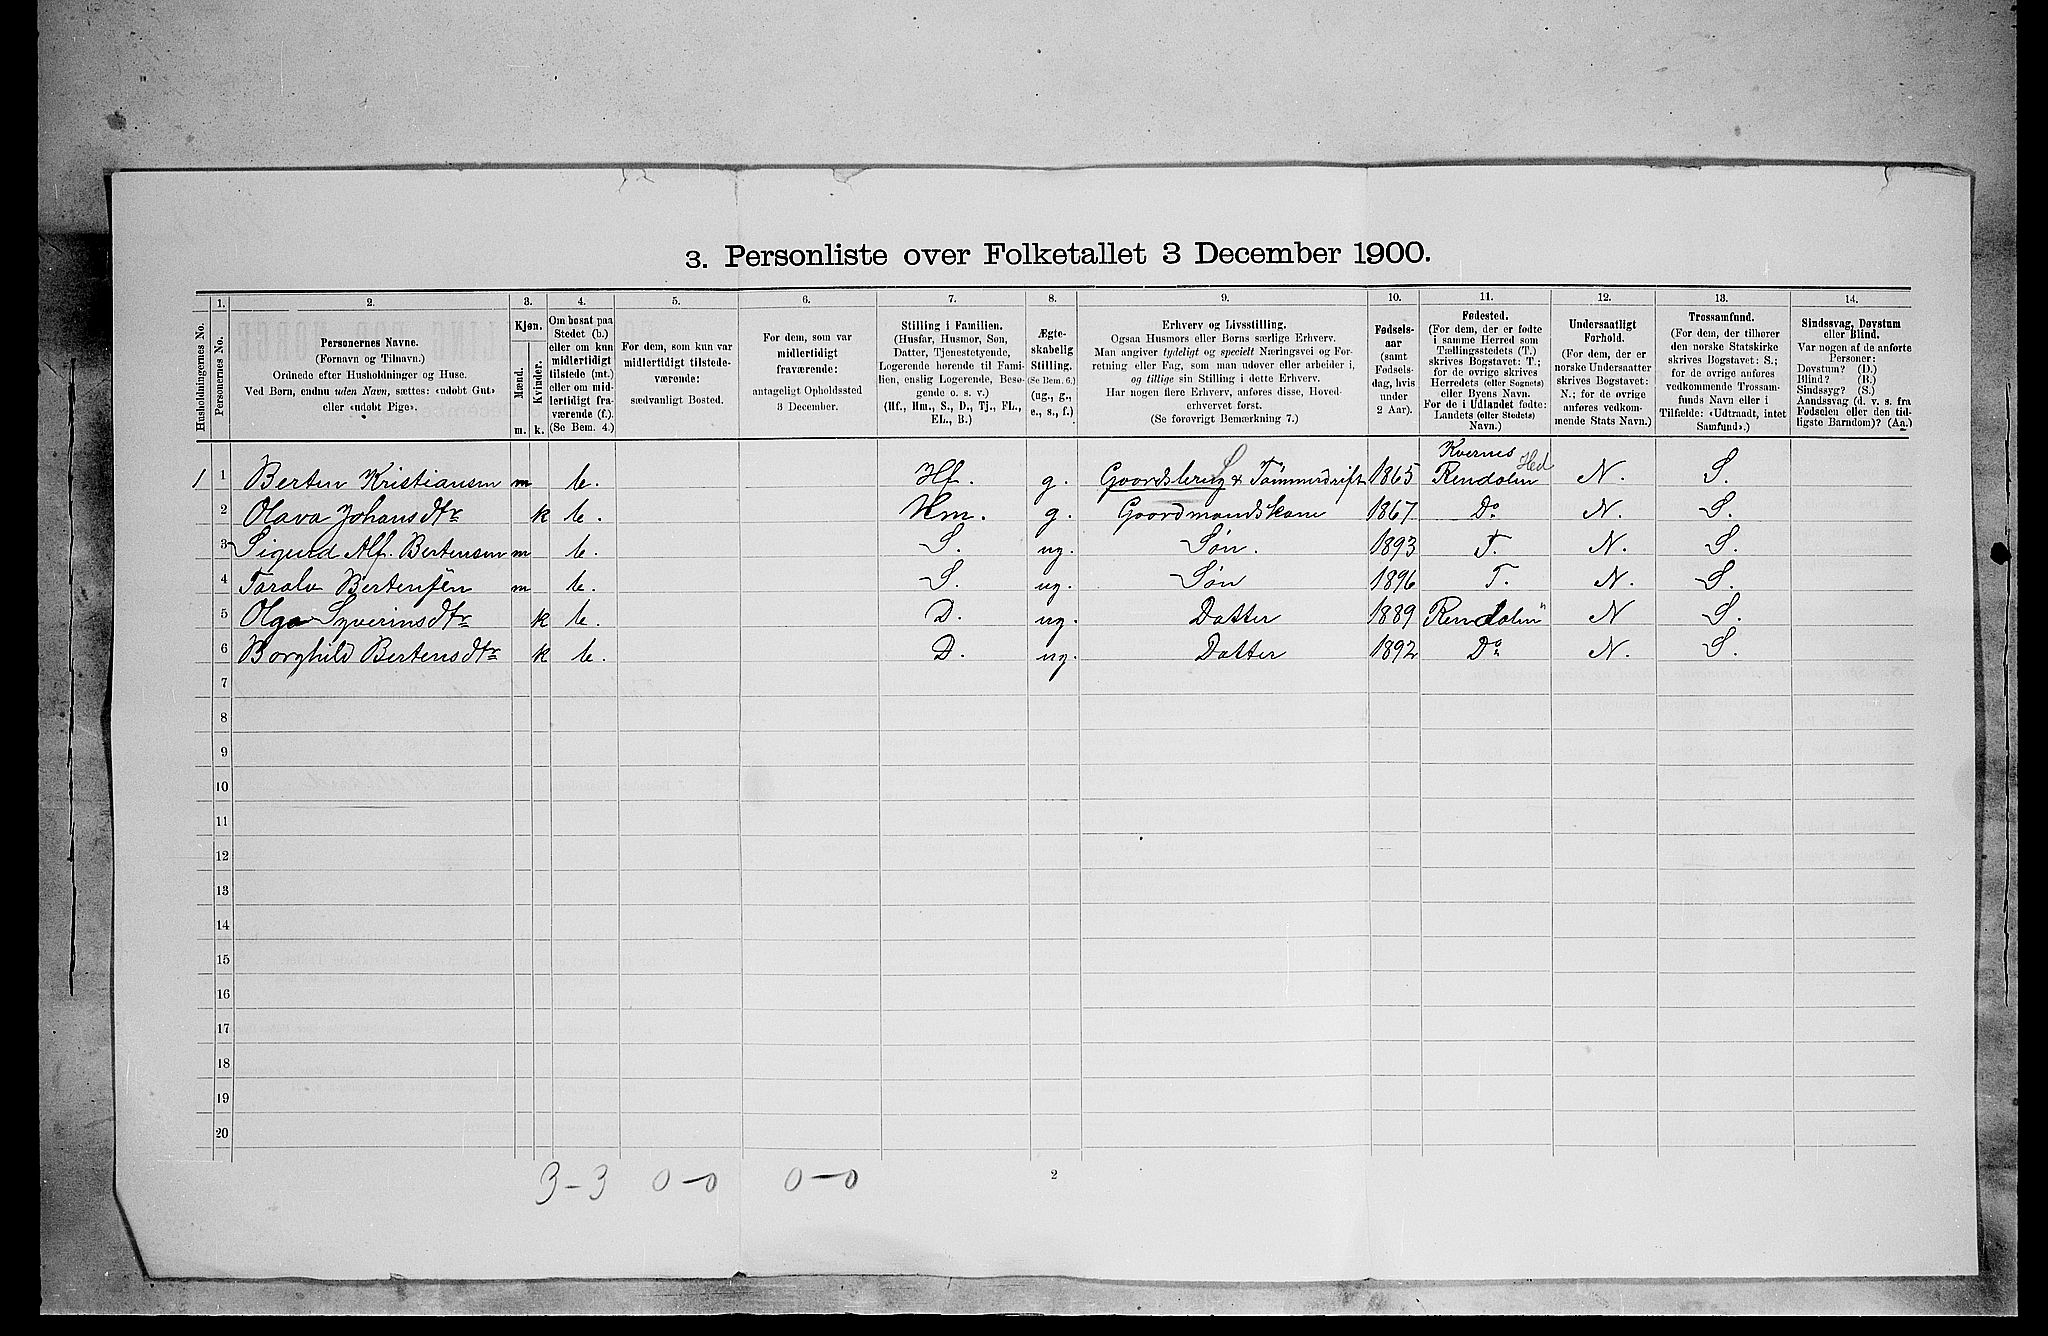 3. Personliste over Folketallet 3 December 1900.
Husholdningernes No.
1. Personernes No.
2.
Personernes Navne.
(Fornavn og Tilnavn.)
Ordnede efter Husholdninger og Huse.
Ved Børn, endnu uden Navn, sættes: «udøbt Gut»
eller «udøbt Pige».
3.
Kjøn.
Mænd. Kvinder.
m. k.
4.
Om bosat paa
Stedet (b.)
eller om kun
midlertidigt
tilstede (mt.)
eller om mid-
lertidigt fra-
værende (f.).
(Se Bem. 4.)
5.
For dem, som kun var
midlertidigt tilstede-
værende:
sædvanligt Bosted.
6.
For dem, som var
midlertidigt
fraværende:
antageligt Opholdssted
3 December.
7.
Stilling i Familien.
(Husfar, Husmor, Søn,
Datter, Tjenestetyende,
Logerende hørende til Fami-
lien, enslig Logerende, Besø-
gende o. s. v.)
(Hf., Hm., S., D., Tj., FL.,
EL., B.)
8.
Ægte-
skabelig
Stilling.
(Se Bem. 6.)
(ug., g.,
e., s., f.)
9.
Erhverv og Livsstilling.
Ogsaa Husmors eller Børns særlige Erhverv.
Man angiver tydeligt og specielt Næringsvei og For-
retning eller Fag, som man udøver eller arbeider i,
og tillige sin Stilling i dette Erhverv.
Har nogen flere Erhverv, anføres disse, Hoved-
erhvervet først.
(Se forøvrigt Bemærkning 7.)
10.
Fødsels-
aar
(samt
Fødsels-
dag, hvis
under
2 Aar).
11.
Fødested.
(For dem, der er fødte
i samme Herred som
Tællingsstedets (T.)
skrives Bogstavet: T.;
for de øvrige skrives
Herredets (eller Sognets)
eller Byens Navn.
For de i Udlandet fødte:
Landets (eller Stedets)
Navn.)
12.
Undersaatligt
Forhold.
(For dem, der er
norske Undersaatter
skrives Bogstavet:
N.; for de øvrige
anføres vedkom-
mende Stats Navn.)
13.
Trossamfund.
(For dem, der tilhører
den norske Statskirke
skrives Bogstavet: S.;
for de øvrige anføres
vedkommende Trossam-
funds Navn eller i
Tilfælde: «Udtraadt, intet
Samfund».)
14.
Sindssvag, Døvstum
eller Blind.
Var nogen af de anførte
Personer:
Døvstum? (D.)
Blind? (B.)
Sindssyg? (S.)
Aandssvag (d. v. s. fra
Fødselen eller den tid-
ligste Barndom)? (Aa.)
Kvernes
1 1 Berten Kristiansen m b. Hf. g. Gaardsbrug & Tømmerdrift 1865 Rendalen Hed N. S.
2 Olava Johansdtr k b. Hm. g. Gaardmandskone 1867 Do N. S.
3 Sigurd Alf. Bertensen m b. S. ug. Søn. 1893 T. N. S.
4 Taralv Bertensen m b. S. ug. Søn 1896 T. N. S.
5 Olga Syverinsdtr k b. D. ug. Datter 1889 Rendalen N S.
6 Borghild Bertensdtr k b. D. ug. Datter 1892 Do N. S.
7
8
9
10
11
12
13
14
15
16
17
18
19
20
3-3 0-0 0-0
2